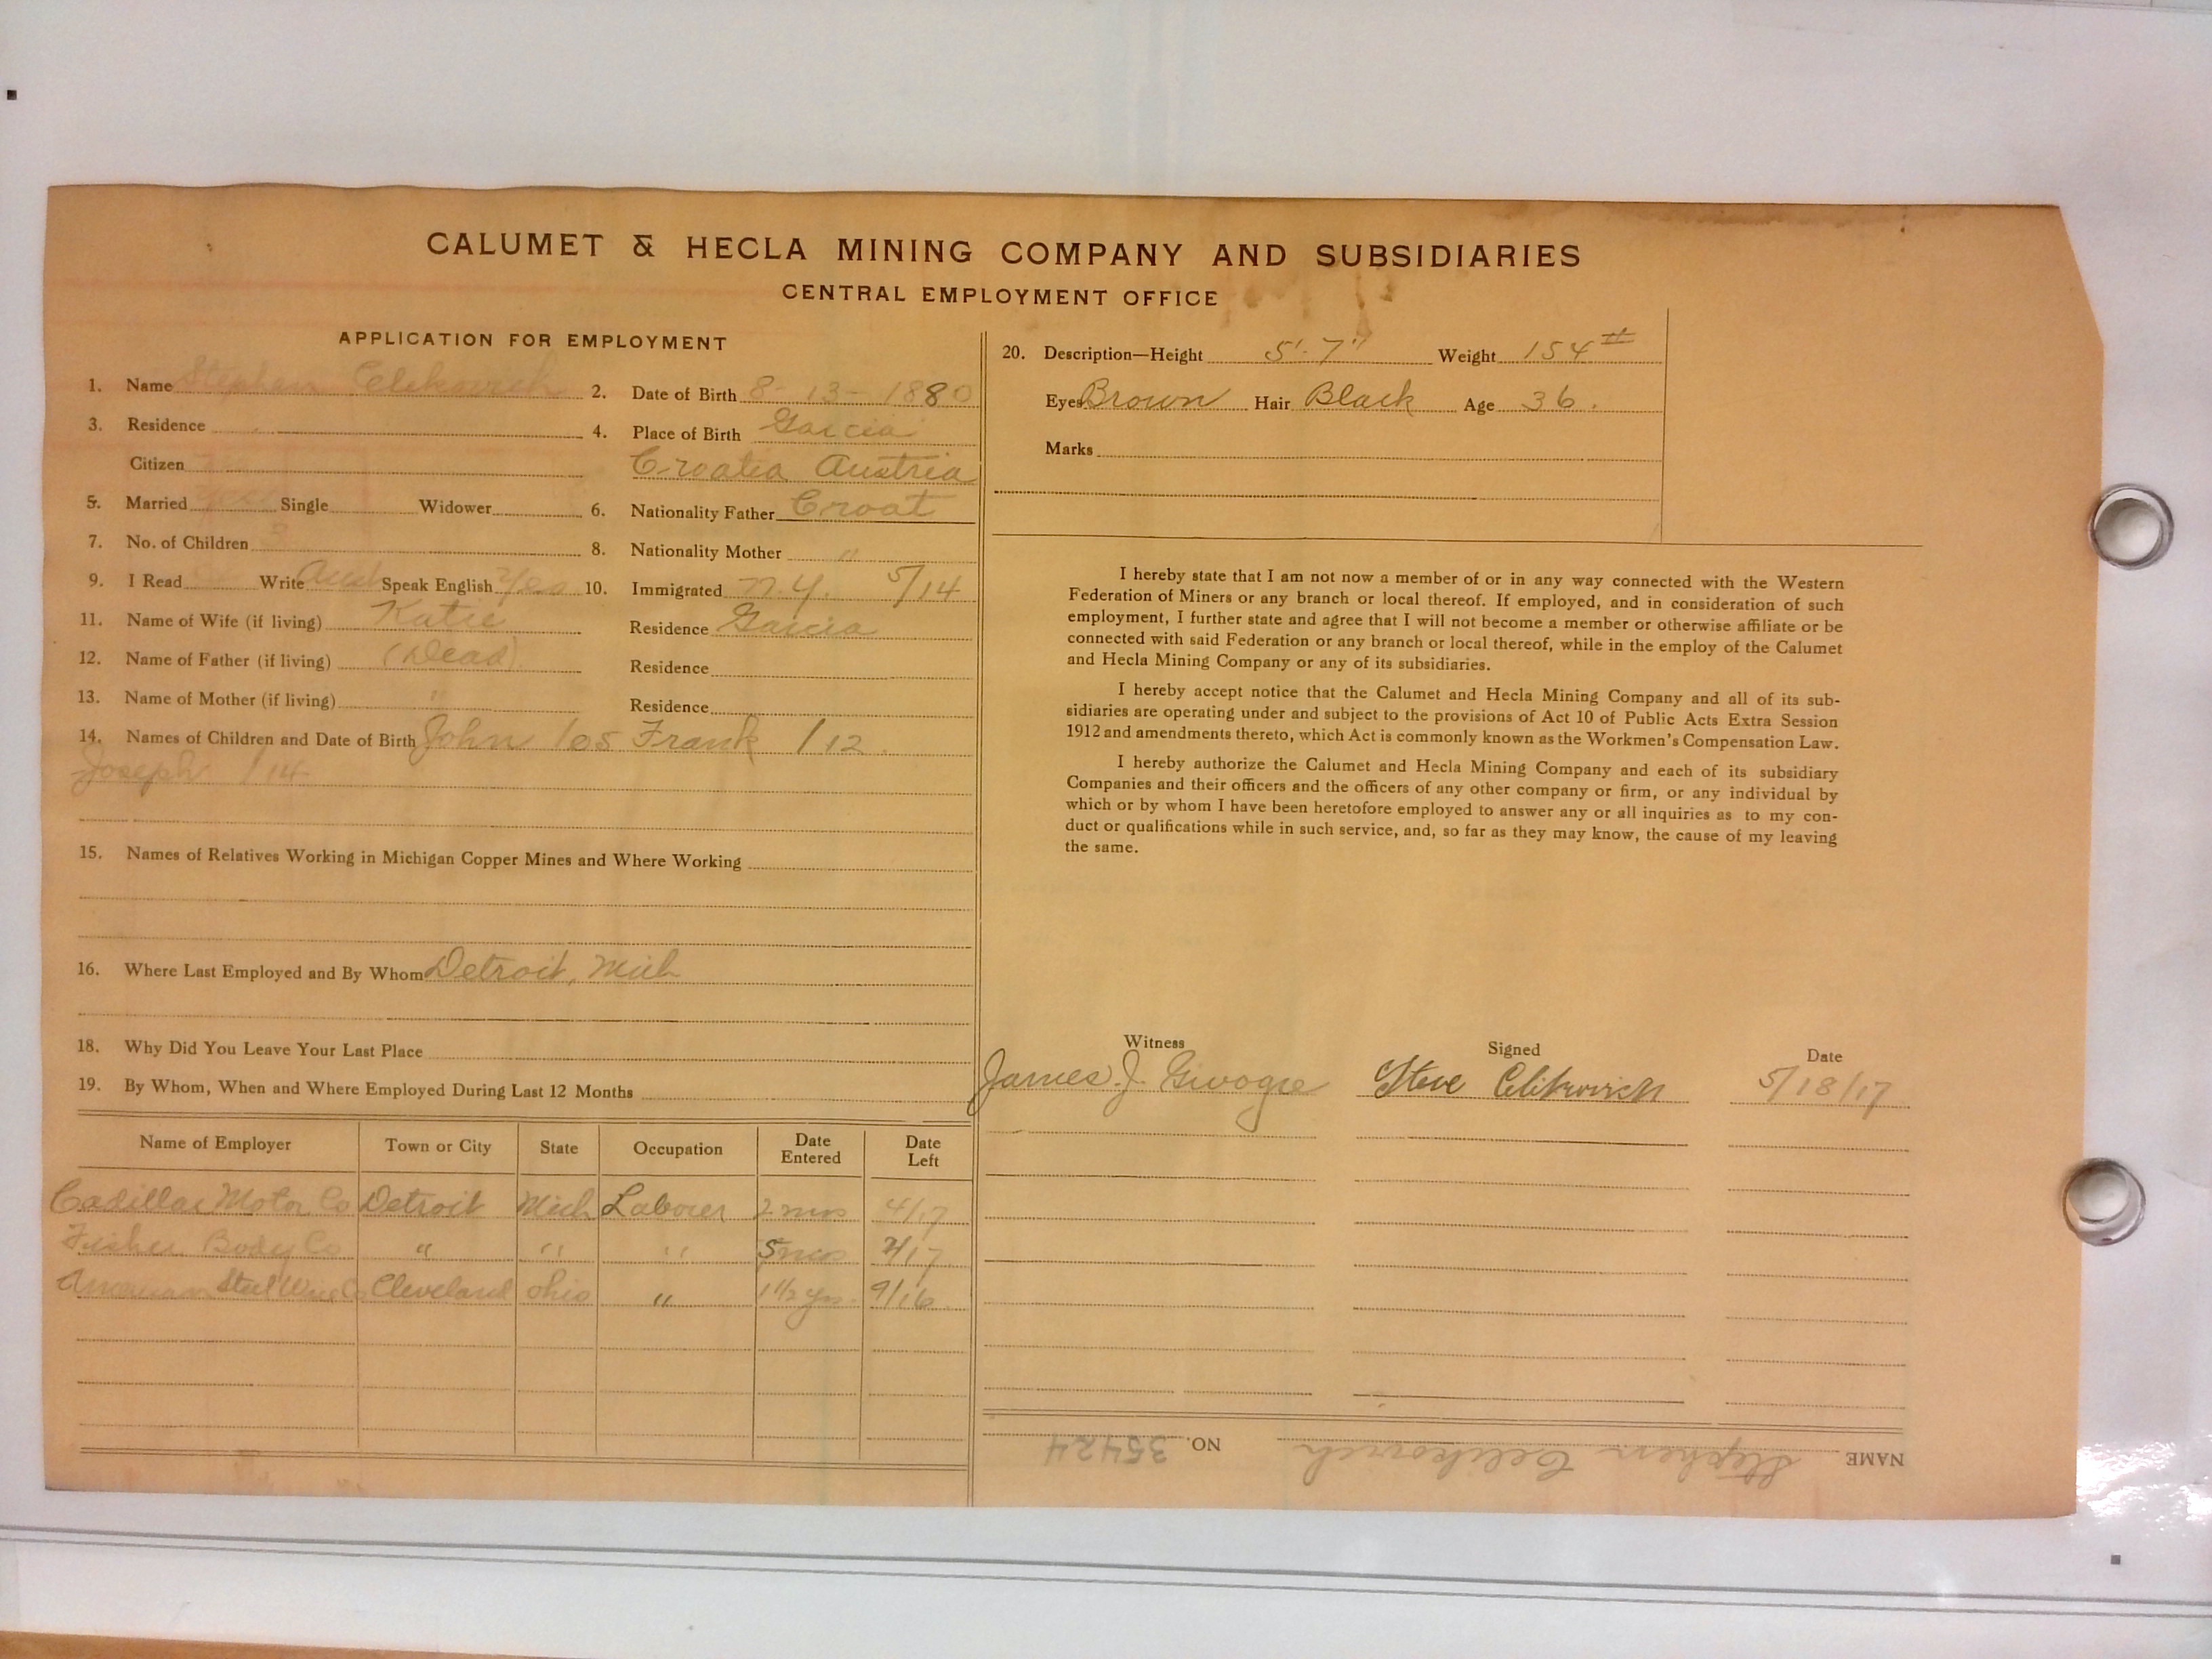 CALUMET & HECLA MINING COMPANY AND SUBSIDIARIES
CENTRAL EMPLOYMENT OFFICE
APPLICATION FOR EMPLOYMENT
1. Name Stephen Celikovich 2. Date of Birth 8-13-1880
3. Residence 4. Place of Birth Garcia
Citizen Croatia Austria
5. Married Yes Single Widower 6. Nationality Father Croat
7. No. of Children 3 8. Nationality Mother "
9. I Read Write Aust Speak English Yes 10. Immigrated N.Y. 5/14
11. Name of Wife (if living) Katie Residence Garcia
12. Name of Father (if living) (Dead) Residence
13. Name of Mother (if living) " Residence
14. Names of Children and Date of Birth John /05 Frank /12.
Joseph /14
15. Names of Relatives Working in Michigan Copper Mines and Where Working
16. Where Last Employed and By Whom Detroit, Mich
18. Why Did You Leave Your Last Place
19. By Whom, When and Where Employed During Last 12 Months
Name of Employer Town or City State Occupation Date Entered Date Left
Cadillac Motor Co Detroit Mich Laborer 2 mos 4/17
Fisher Body Co " " " 5 mos 2/17
American Steel Wire Co Cleveland Ohio " 1 1/2 yrs. 9/16
20. Description—Height 5'-7" Weight 154#
Eyes Brown Hair Black Age 36.
Marks
I hereby state that I am not now a member of or in any way connected with the Western
Federation of Miners or any branch or local thereof. If employed, and in consideration of such
employment, I further state and agree that I will not become a member or otherwise affiliate or be
connected with said Federation or any branch or local thereof, while in the employ of the Calumet
and Hecla Mining Company or any of its subsidiaries.
I hereby accept notice that the Calumet and Hecla Mining Company and all of its sub-
sidiaries are operating under and subject to the provisions of Act 10 of Public Acts Extra Session
1912 and amendments thereto, which Act is commonly known as the Workmen's Compensation Law.
I hereby authorize the Calumet and Hecla Mining Company and each of its subsidiary
Companies and their officers and the officers of any other company or firm, or any individual by
which or by whom I have been heretofore employed to answer any or all inquiries as to my con-
duct or qualifications while in such service, and, so far as they may know, the cause of my leaving
the same.
Witness Signed Date
James J. Steve Celikovich 5/18/17
NAME Stephen Celikovich NO. 35424